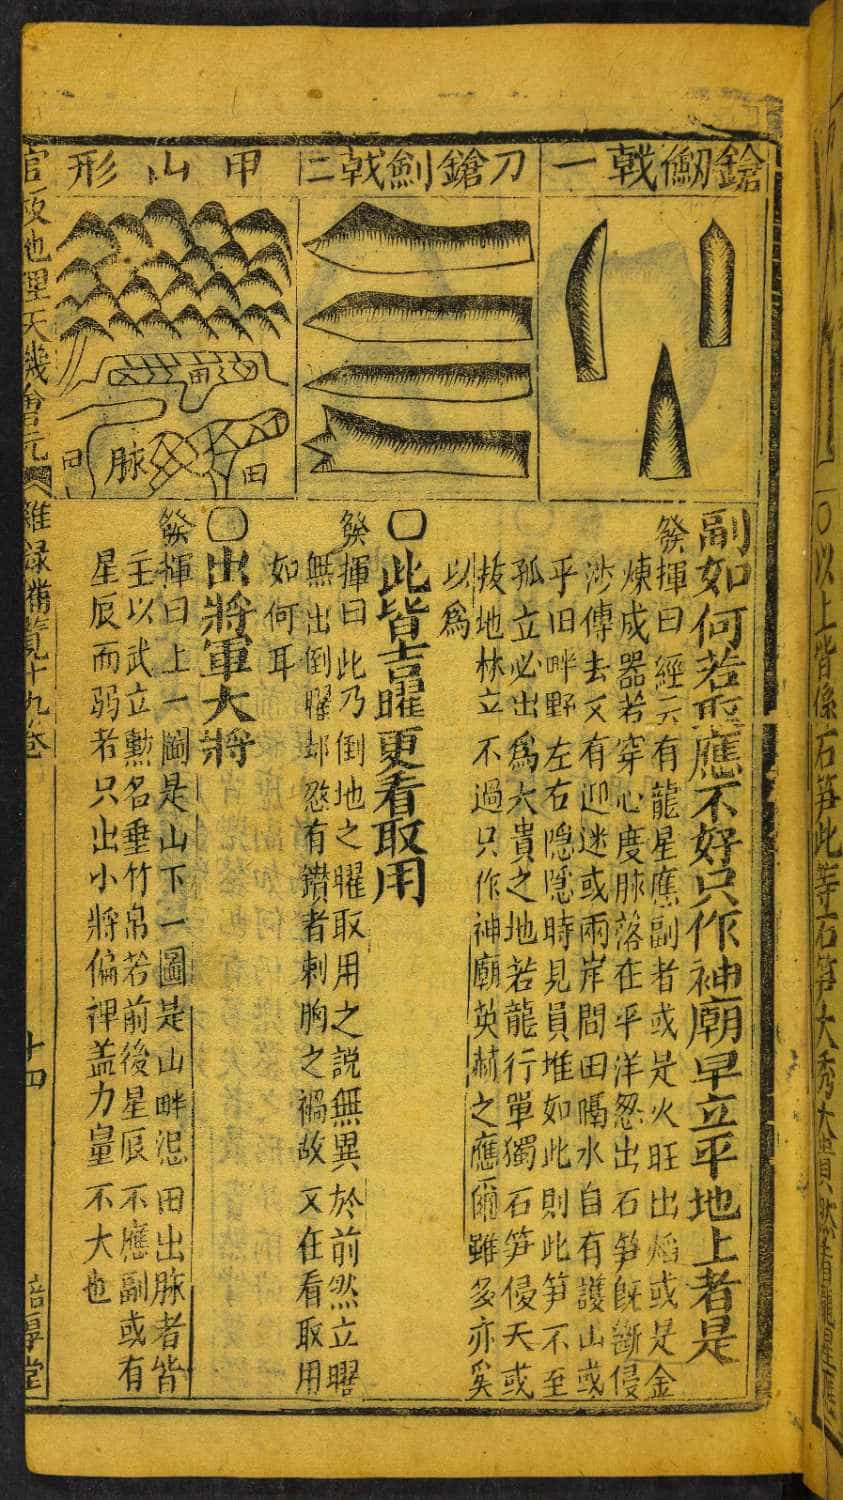 鎗劒戟一
刀鎗劍戟二
甲山形
田
脉
田
田
副如何若星應不好只作神廟早立平地上者是
發揮曰經云有龍星應副者或是火旺出熖或是金
煉成器若穿心度脉落在平洋忽出石笋旣斷侵
涉傳去又有迎迷或兩岸問田喝水自有護山或
乎旧畔野左右隱隱時見員堆如此則此笋不至
孤立必出爲大貴之地若龍行單獨石笋侵天或
拔地林立不過只作神廟英赫之應爾雖多亦奚
以爲
〇此皆吉曜更看取用
發揮曰此乃倒地之曜取用之説無異於前然立曜
無出倒曜却忽有鑚者刺胸之禍故又在看取用
如何耳
〇出將軍大將
發揮曰上一圖是山下一圖是山畔浥田出脉者皆
主以武立勲名垂竹帛若前後星辰不應副或有
星辰而弱者只出小將偏裨盖力量不大也
官板地理天機會元
雜録備覧十九卷
十四
〇以上皆係石笋此等石笋大秀大貴